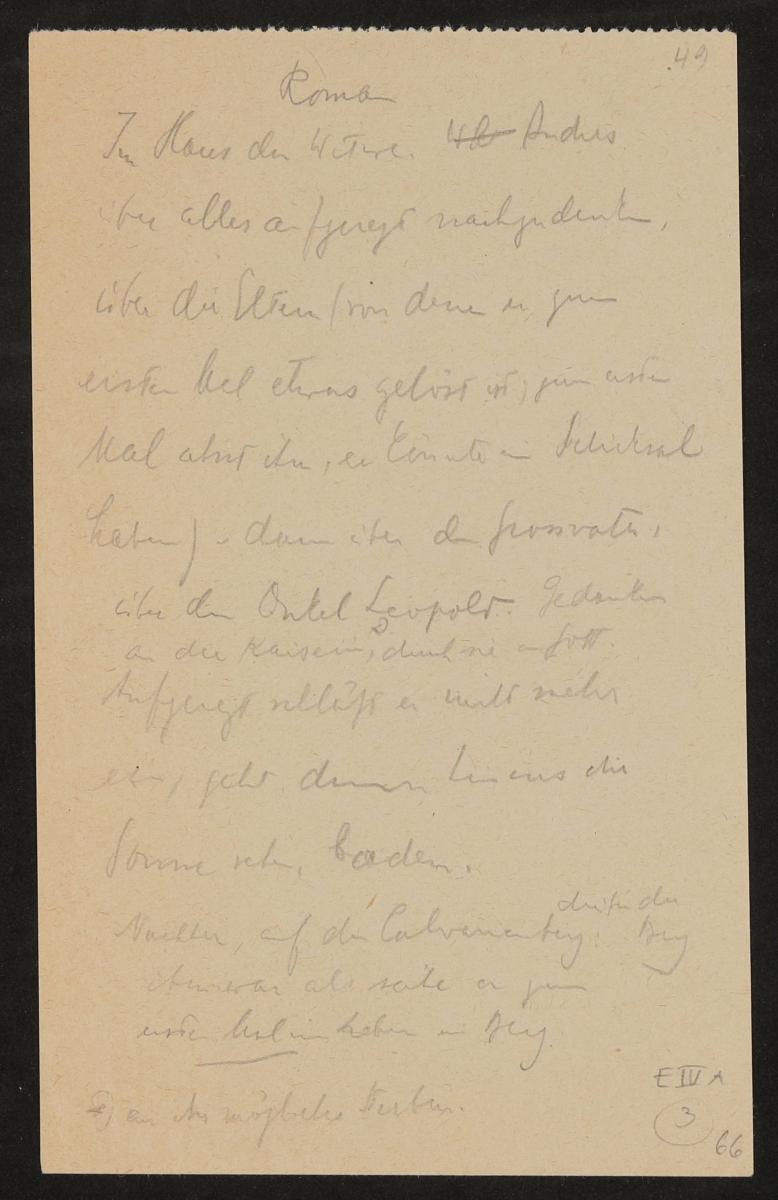 49
Roman
Im Haus der Witwe. Andres
über alles aufgeregt nachzudenken,
über die Eltern (von denen er zum
ersten Mal etwas gelöst ist, zum ersten
Mal ahnt ihn, er könnte ein Schicksal
haben) dann über den Grossvater,
über den Onkel Leopold. Gedanken
an die Kaiserin, denkt sie an Gott.
Aufgeregt schläft er nicht mehr
ein, geht dann hinaus die
Sonne sehn, baden.
Nachher, auf den Calvarienberg: Berg
ihm war als sehe er zum
ersten Mal im Leben ein Berg.
an ihr mögliches Sterben.
E IV A
3
66